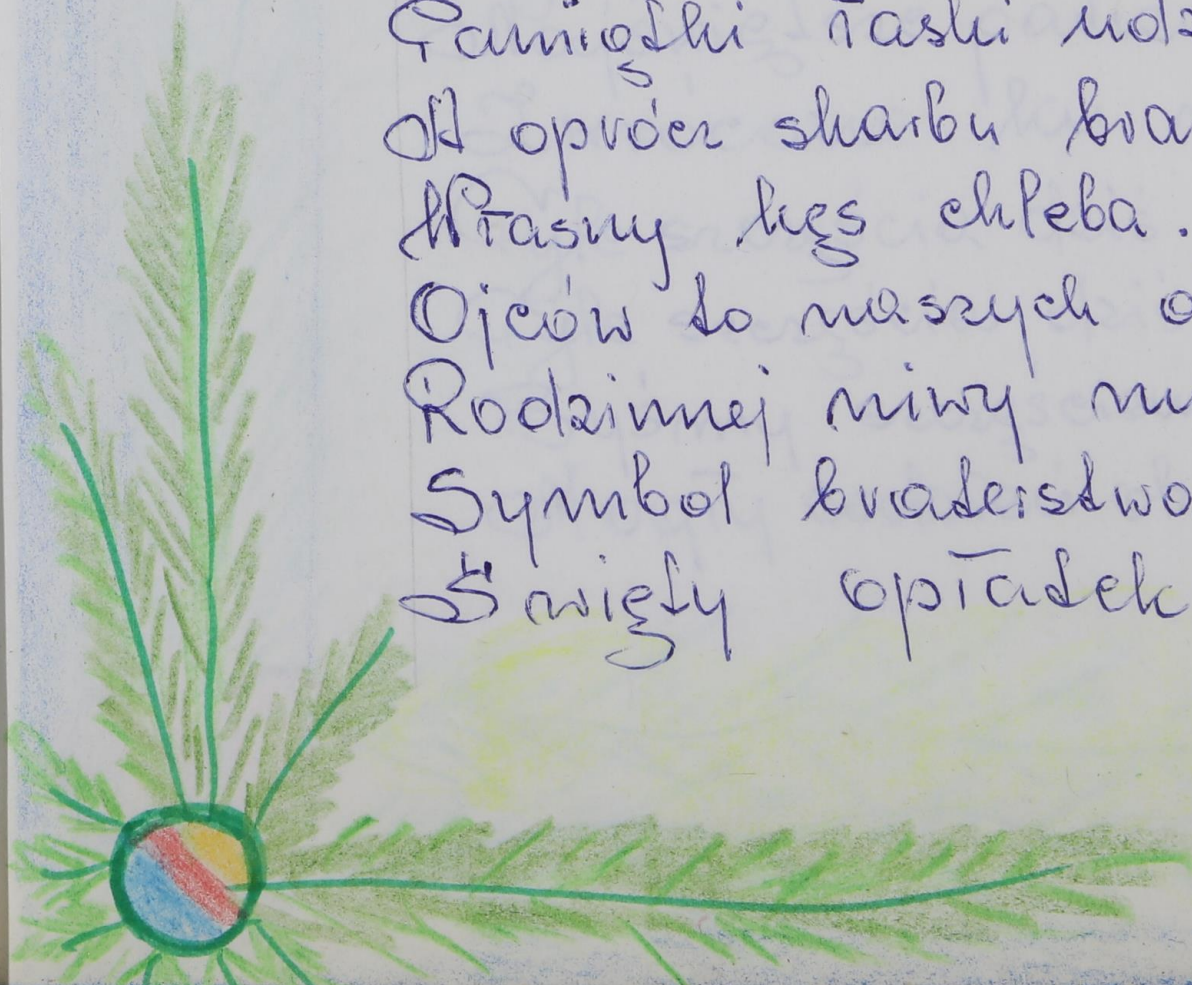 Pamiątki łaski udz
A oprócz skarbu bra
Własny kęs chleba.
Ojców to naszych o
Rodzinnej niwy
Symbol braterstwo
Święty opłatek